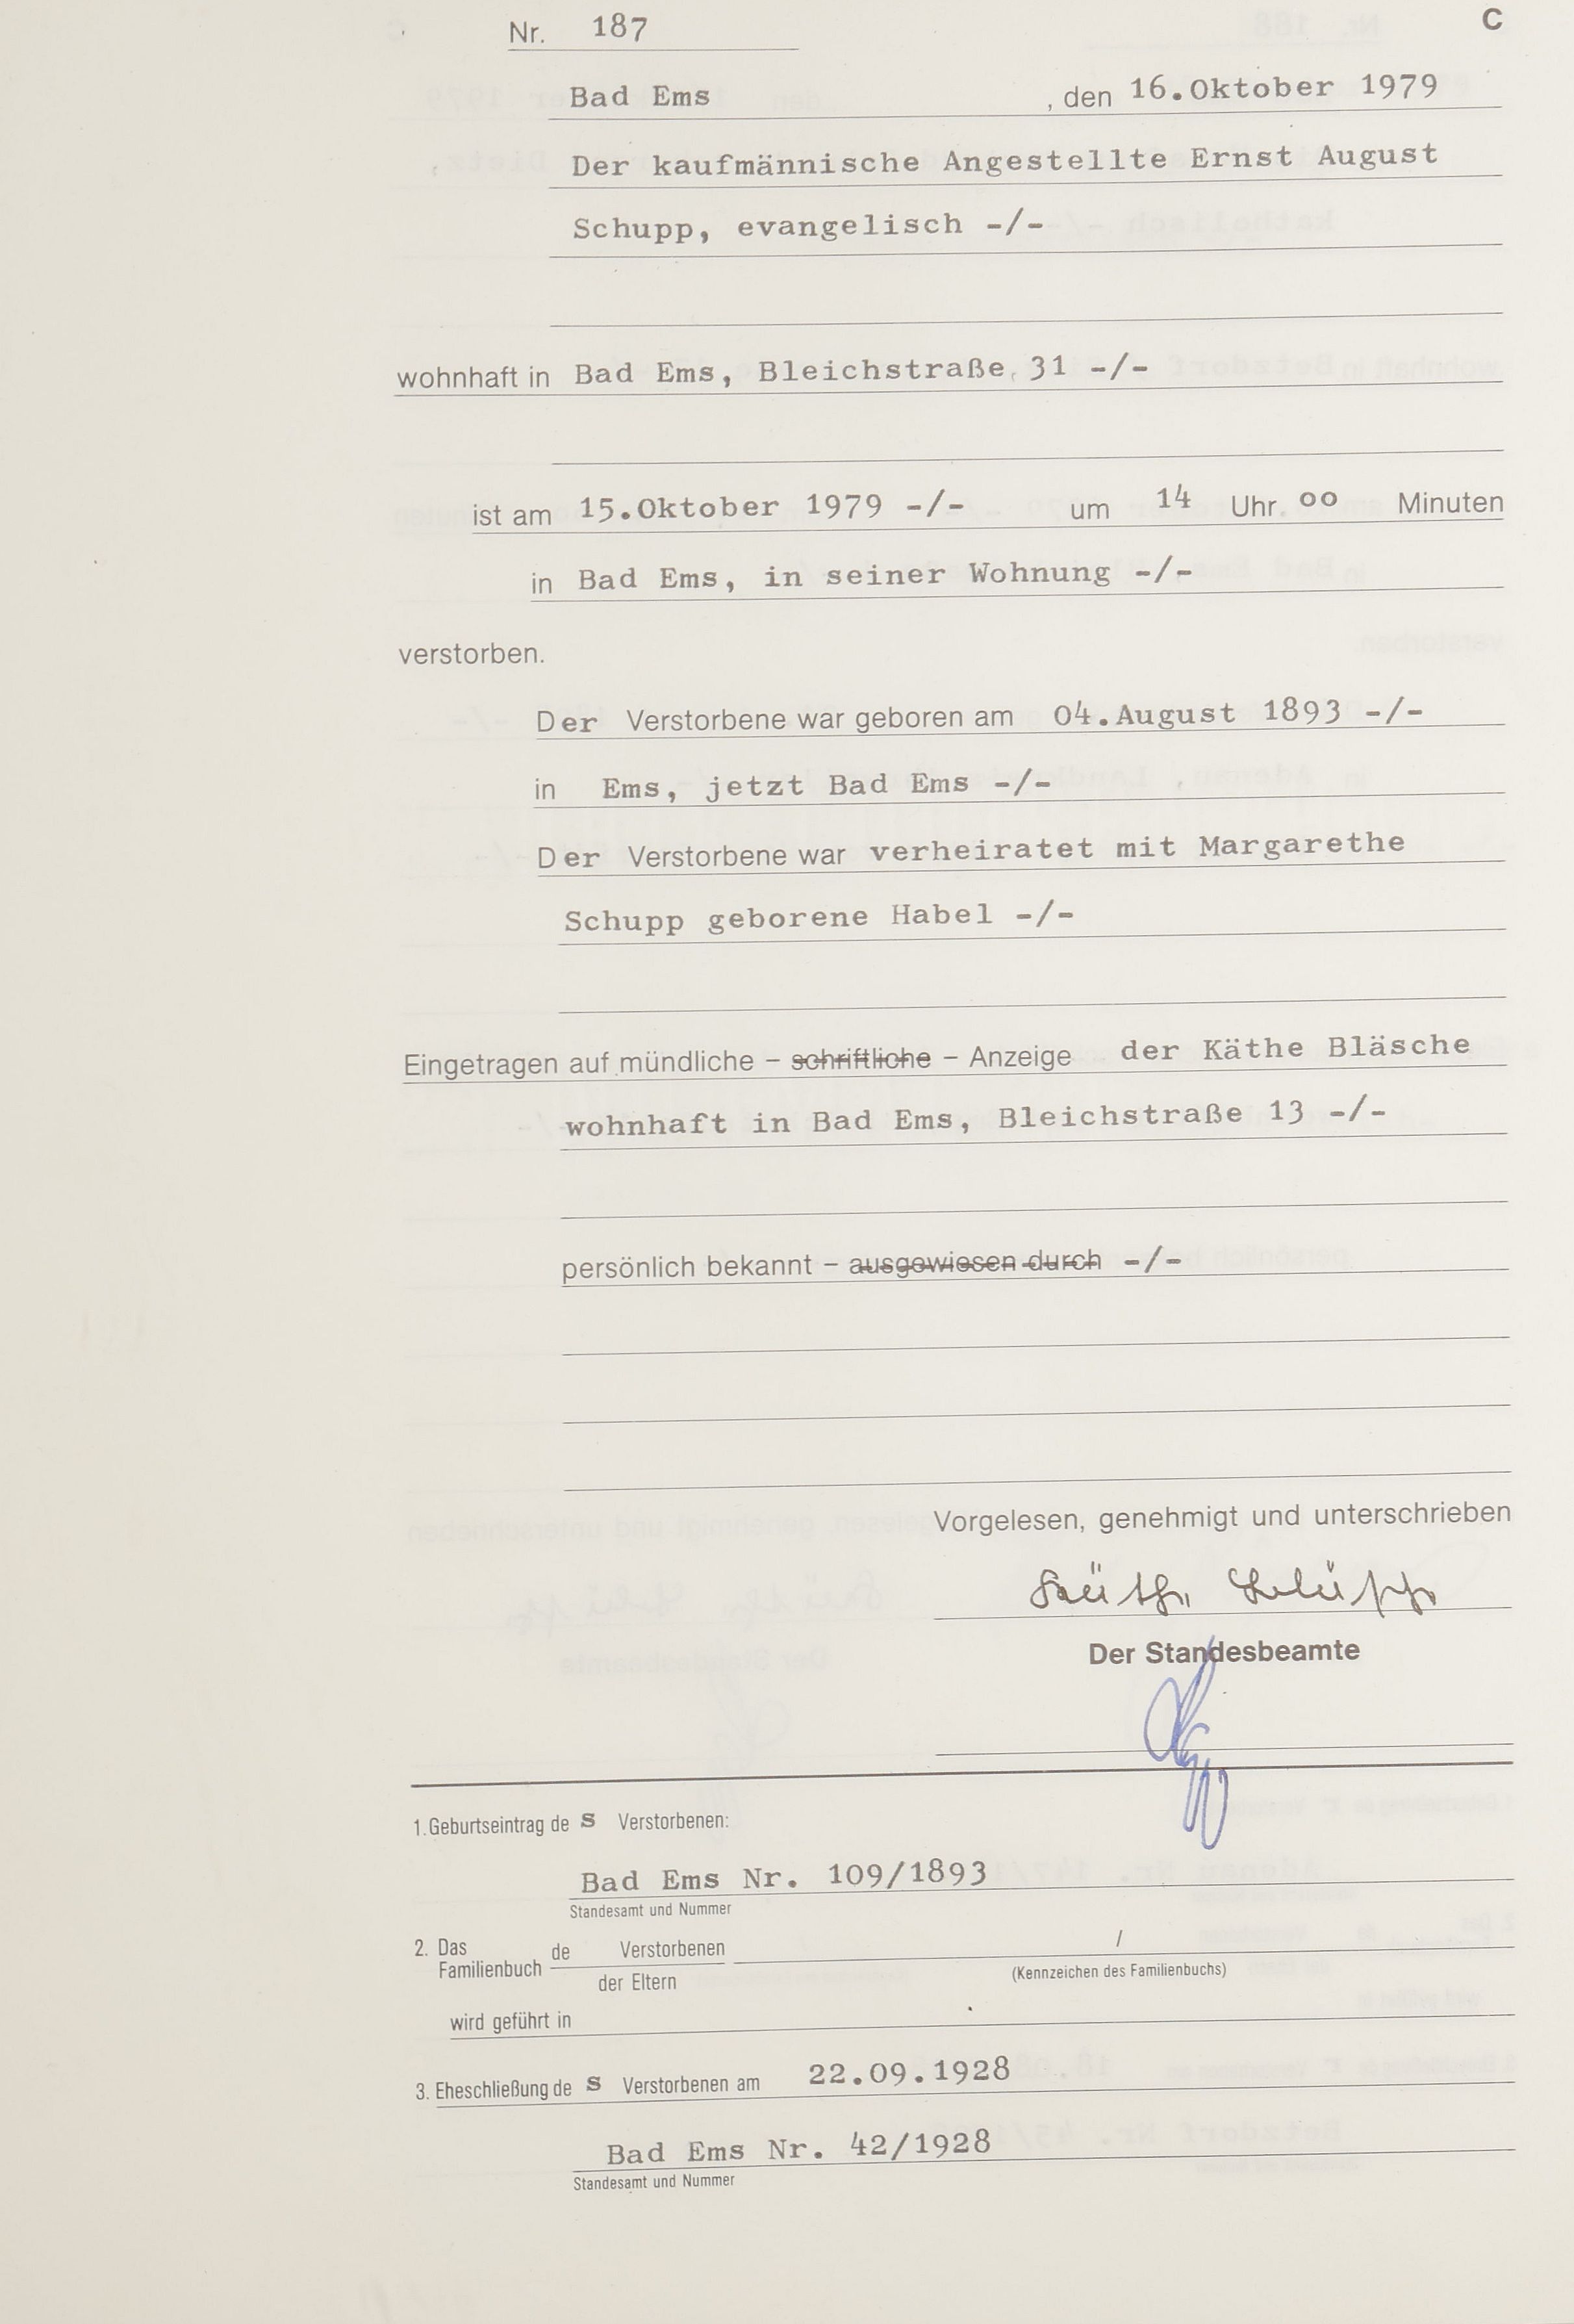 Nr. 187 C
Bad Ems , den 16.Oktober 1979
Der kaufmännische Angestellte Ernst August
Schupp, evangelisch -/-
wohnhaft in Bad Ems, Bleichstraße 31 -/-
ist am 15.Oktober 1979 -/- um 14 Uhr oo Minuten
in Bad Ems, in seiner Wohnung -/-
verstorben.
Der Verstorbene war geboren am 04.August 1893 -/-
in Ems, jetzt Bad Ems -/-
Der Verstorbene war verheiratet mit Margarethe
Schupp geborene Habel -/-
Eingetragen auf mündliche – schriftliche – Anzeige der Käthe Bläsche
wohnhaft in Bad Ems, Bleichstraße 13 -/-
persönlich bekannt – ausgewiesen durch -/-
Vorgelesen, genehmigt und unterschrieben
Der Standesbeamte
1. Geburtseintrag de s Verstorbenen:
Bad Ems Nr. 109/1893
Standesamt und Nummer
2. Das de Verstorbenen /
Familienbuch der Eltern (Kennzeichen des Familienbuchs)
wird geführt in
3. Eheschließung de s Verstorbenen am 22.09.1928
Bad Ems Nr. 42/1928
Standesamt und Nummer